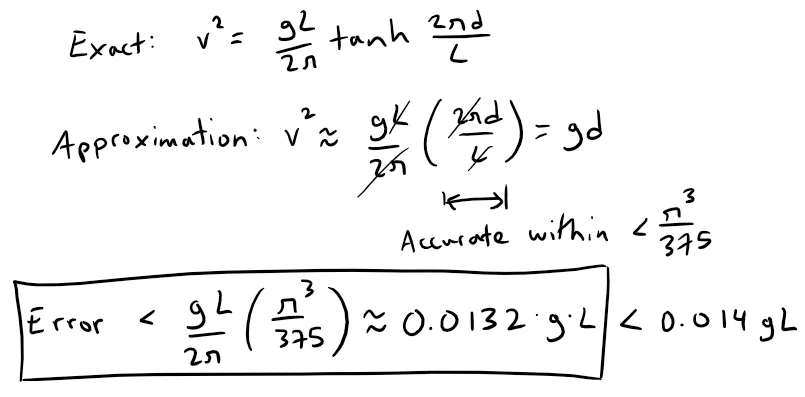 Exact: v² = gL/2π tanh 2πd/L
Approximation: v² ≈ gL/2π (2πd/L) = gd
Accurate within < π³/375
Error < gL/2π (π³/375) ≈ 0.0132·g·L < 0.014 gL